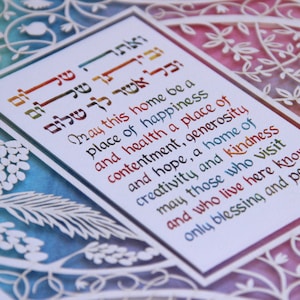 ואתה שלום
וביתך שלום
וכל אשר לך שלום
May this home be a
place of happiness
and health a place of
contentment, generosity,
and hope, a home of
creativity and kindness
may those who visit
and who live here know
only blessing and